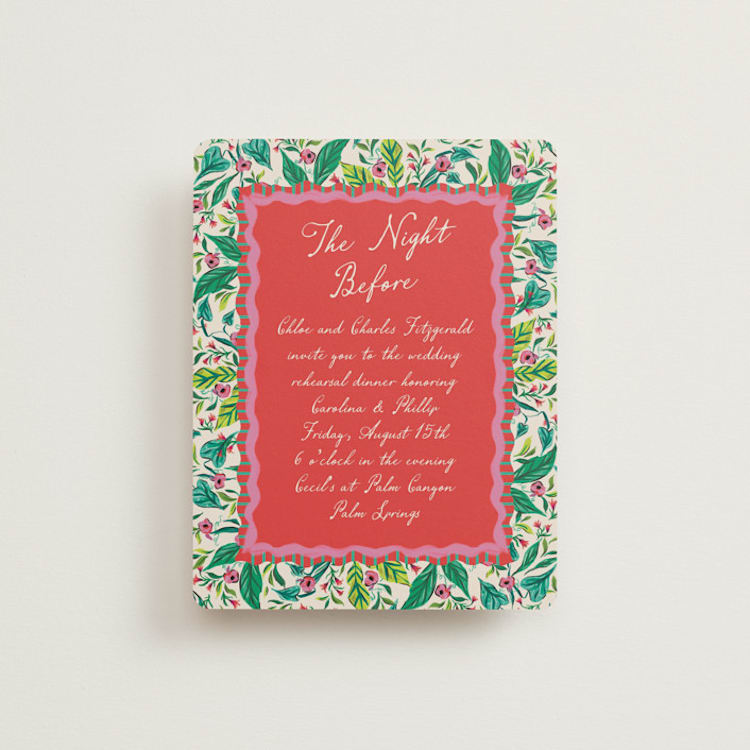 The Night
Before
Chloe and Charles Fitzgerald
invite you to the wedding
rehearsal dinner honoring
Carolina & Phillip
Friday, August 15th
6 o'clock in the evening
Cecil's at Palm Canyon
Palm Springs